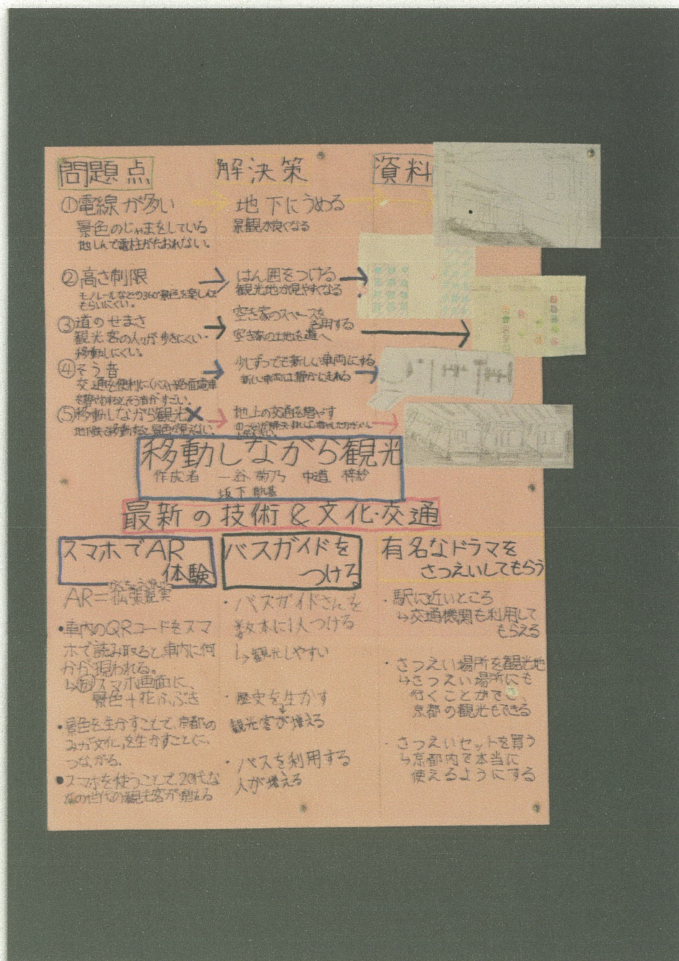 問題点
解決策
資料
①電線が多い
景色のじゃまをしている
地しんで電柱がたおれない。
地下にうめる
景観が良くなる
②高さ制限
はん囲をつける
観光地が見やすくなる
③道のせまさ
観光客の人が歩きにくい・
移動しにくい。
空き家のスペースを
活用する
空き家の土地を道へ
④そう音
少しずつでも新しい車両にする
新しい車両は静かにもある
⑤移動しながら観光✕
地上の交通を増やす
移動しながら観光
作成者
最新の技術&文化・交通
スマホでAR
体験
AR=拡張現実
・車内のQRコードをスマ
ホで読み取ると車内に何
かが現われる。
↳例スマホ画面に、
景色+花ふぶき
・景色を生かすことで、京都の
文化を生かすことに、
つながる。
・スマホを使うことで、20代な
観光客が増える
バスガイドを
つける
・バスガイドさんを
数本に1人つける
↳観光しやすい
・歴史を生かす
↓
観光客が増える
・バスを利用する
人が増える
有名なドラマを
さつえいしてもらう
・駅に近いところ
↳交通機関も利用して
もらえる
・さつえい場所を観光地
↳さつえい場所にも
行くことができ
京都の観光もできる
・さつえいセットを買う
↳京都内で本当に
使えるようにする